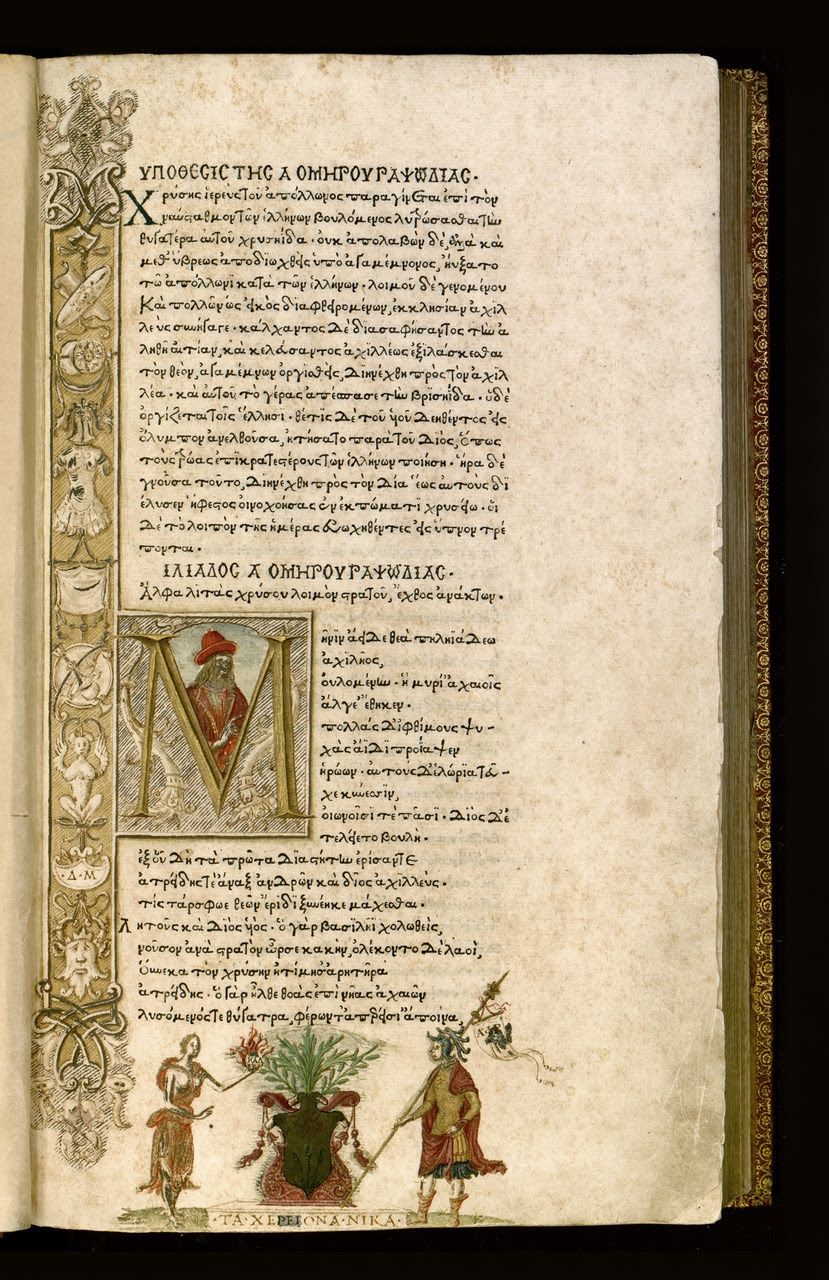 ΥΠΟΘΕCΙC ΤΗC Α ΟΜΗΡΟΥ ΡΑΨΩΔΙΑC·
Χρύσης ἱερεὺς τοῦ ἀπόλλωνος παραγίνεται ἐπὶ τὸν
ναύσταθμον τῶν ἑλλήνων βουλόμενος λυτρώσασθαι τὴν
θυγατέρα αὐτοῦ χρυσηίδα · οὐκ ἀπολαβὼν δὲ, ἀλλὰ καὶ
μεθ' ὕβρεως ἀποδιωχθεὶς ὑπὸ ἀγαμέμνονος, ηὔξατο
τῶ ἀπόλλωνι κατὰ τῶν ἑλλήνων · λοιμοῦ δὲ γενομένου
Καὶ πολλῶν ὡς εἰκὸς διαφθειρομένων, ἐκκλησίαν ἀχιλ
λεὺς συνήγαγε · κάλχαντος δὲ διασαφήσαντος τὴν ἀ
ληθῆ αἰτίαν, καὶ κελεύσαντος ἀχιλλέως ἐξιλάσκεσθαι
τὸν θεὸν, ἀγαμέμνων ὀργισθεὶς, διηνέχθη πρὸς τὸν ἀχιλ
λέα · καὶ αὐτοῦ τὸ γέρας ἀπέσπασε τὴν βρισηίδα · ὁ δὲ
ὀργίζεται τοῖς ἕλλησι · θέτις δὲ τοῦ υἱοῦ δεηθέντος εἰς
ὄλυμπον ἀνελθοῦσα, ἠτήσατο παρὰ τοῦ διός, ὅπως
τοὺς τρῶας ἐπικρατεστέρους τῶν ἑλλήνων ποιήση · ἥρα δὲ
γνοῦσα τοῦτο, διηνέχθη πρὸς τὸν δία ἕως αὐτοὺς δι
έλυσεν ἥφεστος οἰνοχοήσας ἐν ἐκπώματι χρυσείω · οἱ
δὲ τὸ λοιπὸν τῆς ἡμέρας εὐωχηθέντες εἰς ὕπνον τρέ
πονται ·
ΙΛΙΑΔΟC Α ΟΜΗΡΟΥ ΡΑΨΩΔΙΑC·
Ἄλφα λιτὰς χρύσου λοιμὸν στρατοῦ, ἔχθος ἀνάκτων ·
Μῆνιν ἄειδε θεὰ πηληιάδεω
ἀχιλῆος,
οὐλομένην · ἣ μυρί' ἀχαιοῖς
ἄλγε' ἔθηκεν ·
πολλὰς δ' ἰφθίμους ψυ-
χὰς ἄϊδι προΐαψεν
ἡρώων · αὐτοὺς δ' ἑλώρια τεῦ-
χε κύνεσσιν,
οἰωνοῖσί τε πᾶσι · διὸς δὲ
τελείετο βουλή ·
ἐξ οὗ δὴ τὰ πρῶτα διαστήτην ἐρίσαντε
ἀτρείδης τε ἄναξ ἀνδρῶν καὶ δῖος ἀχιλλεύς ·
τίς τάρ σφωε θεῶν ἔριδι ξυνέηκε μάχεσθαι ·
Λητοῦς καὶ διὸς υἱός · ὁ γὰρ βασιλῆϊ χολωθεὶς,
νοῦσον ἀνὰ στρατὸν ὦρσε κακὴν, ὀλέκοντο δὲ λαοὶ,
Οὕνεκα τὸν χρύσην ἠτίμησ' ἀρητῆρα
ἀτρείδης · ὁ γὰρ ἦλθε θοὰς ἐπὶ νῆας ἀχαιῶν
λυσόμενός τε θύγατρα, φέρων τ' ἀπερείσι' ἄποινα,
·Δ·Μ
·ΤΑ·ΧΕΡΕΙΟΝΑ·ΝΙΚΑ·